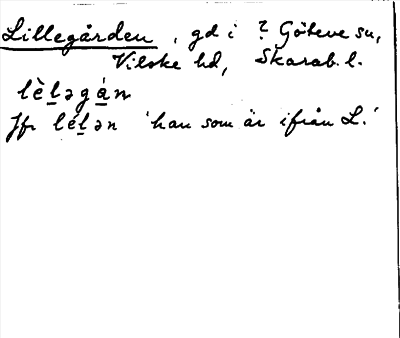 Lillegården, gd i ? Göteve sn,
Vilske hd, Skarab. l.
lèl̠əgá̠n
Jfr lél̠ən 'han som är ifrån L.'